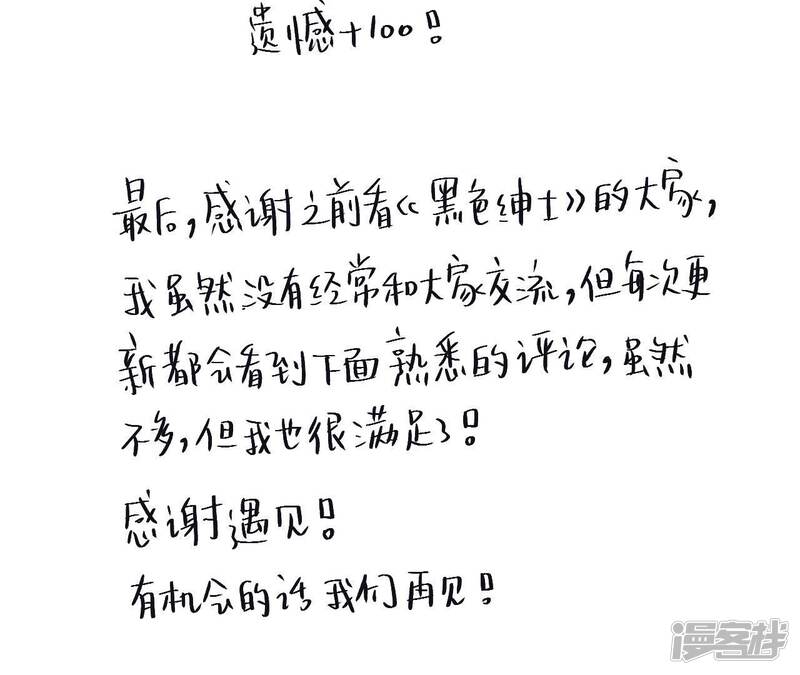 遗憾+100!
最后,感谢之前看《黑色绅士》的大家,
我虽然没有经常和大家交流,但每次更
新都会看到下面熟悉的评论,虽然
不多,但我也很满足了!
感谢遇见!
有机会的话我们再见!
漫客栈